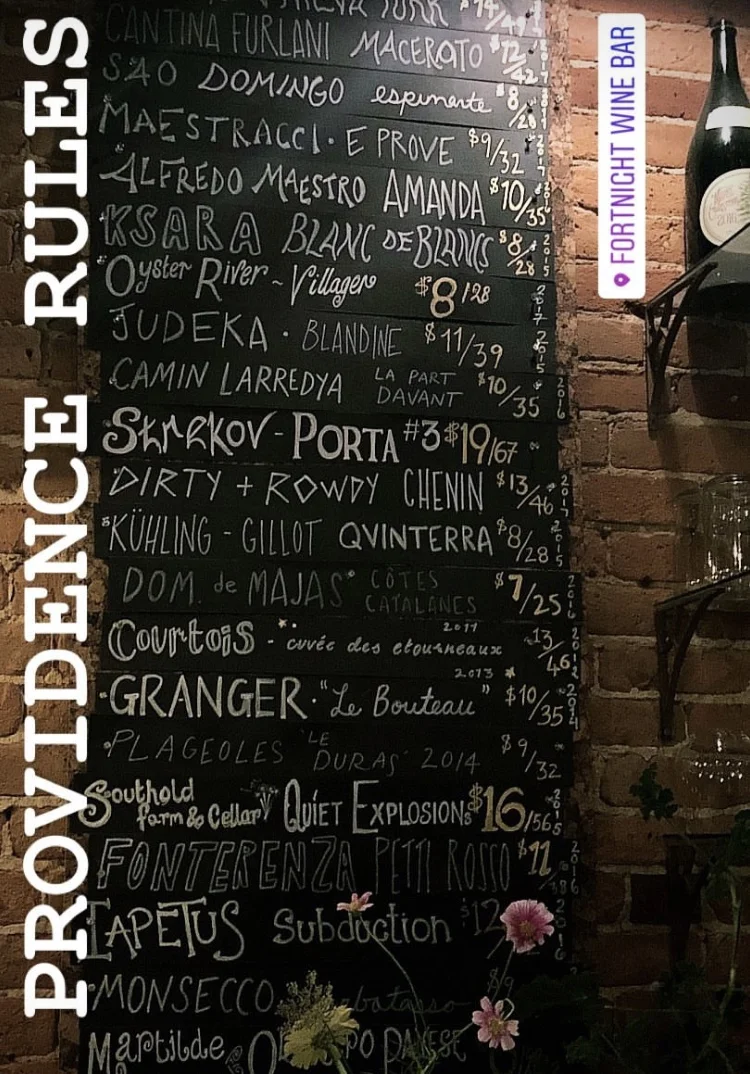 CANTINA FURLANI MACERATO $12/42
SÃO DOMINGO espimante $8/28
MAESTRACCI · E PROVE $9/32 2017
ALFREDO MAESTRO AMANDA $10/35
KSARA BLANC DE BLANCS $8/28 2015
Oyster River ~ Villager $8/28 2017
JUDEKA · BLANDINE $11/39 2015
CAMIN LARREDYA LA PART DAVANT $10/35 2016
Strekov - PORTA #3 $19/67
DIRTY + ROWDY CHENIN $13/46 2017
KÜHLING - GILLOT QVINTERRA $8/28 2015
DOM. de MAJAS CÔTES CATALANES $7/25 2016
Courtois - cuvée des etourneaux 2011 13/46
GRANGER · "Le Bouteau" 2013 $10/35
PLAGEOLES 'LE DURAS' 2014 $9/32
Southold farm & Cellar QUIET EXPLOSIONS $16/56
FONTERENZA PETIT ROSSO $11/38 2016
IAPETUS Subduction $12
MONSECCO $9
Martilde
PROVIDENCE RULES
FORTNIGHT WINE BAR